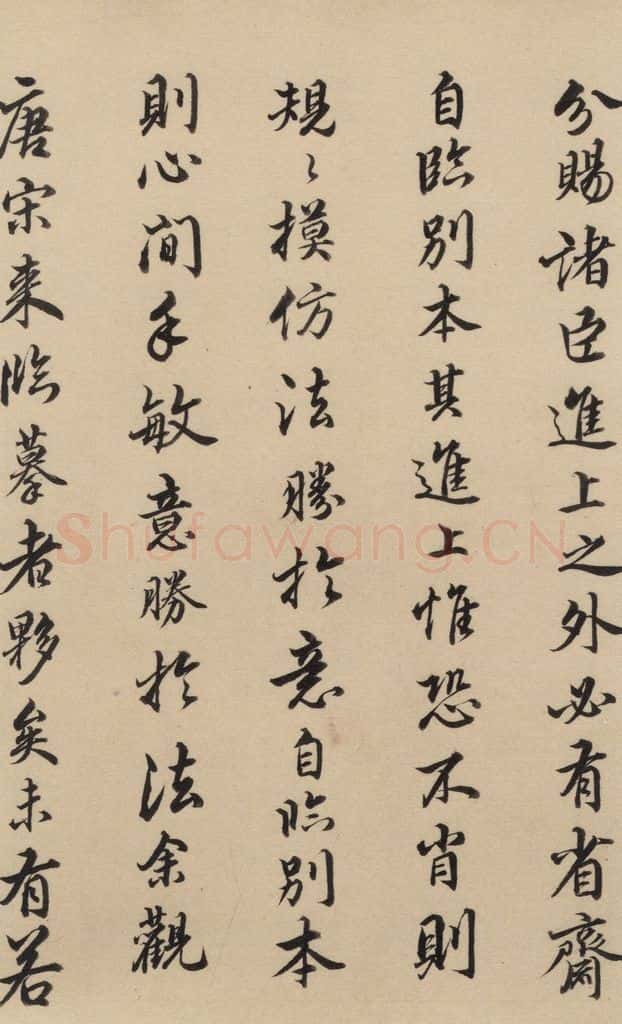 分賜諸臣進上之外必有省齋
自臨別本其進上惟恐不肖則
規〻摸仿法勝於意自臨別本
則心間手敏意勝於法余觀
唐宋来臨摹者夥矣未有若
Shufawang.CN